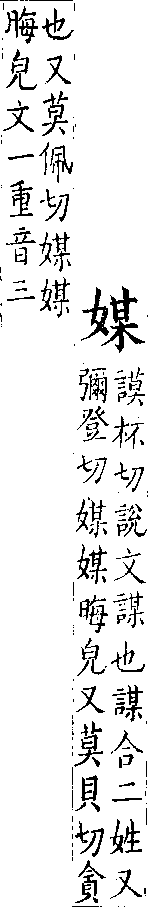 媒
謨杯切說文謀也謀合二姓又
彌登切媒媒晦皃又莫貝切貪
也又莫佩切媒媒
晦皃文一重音三